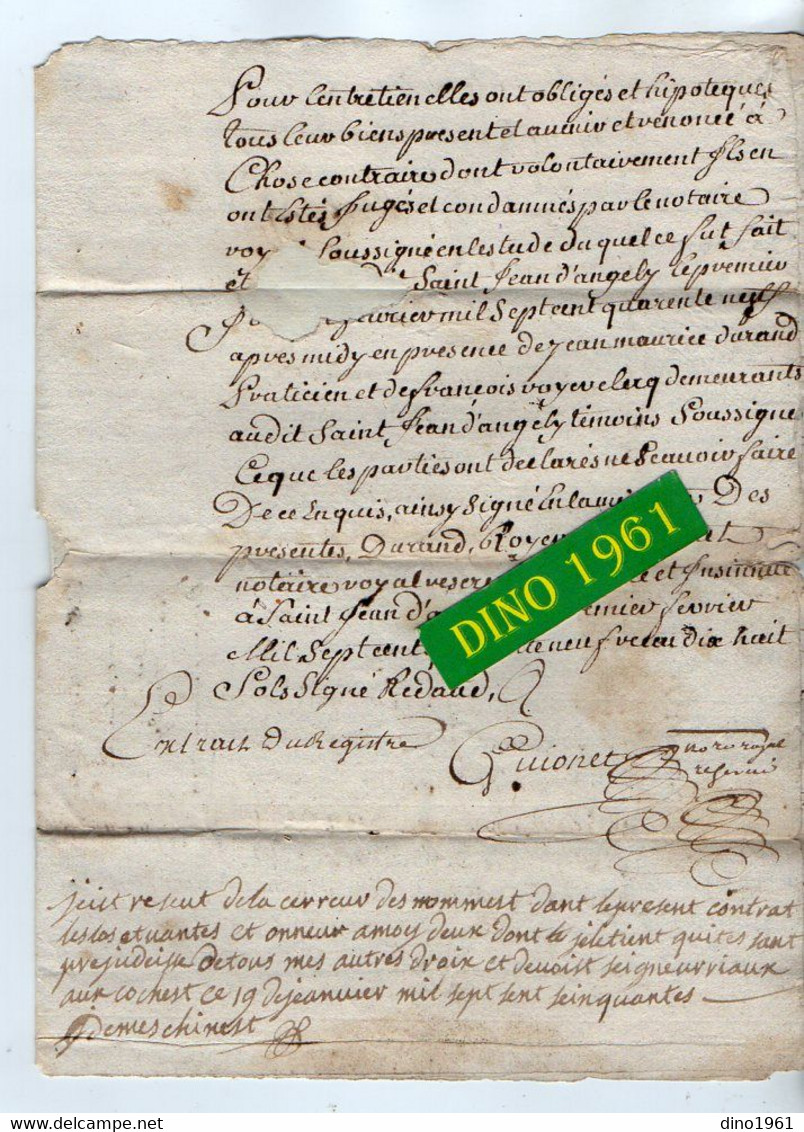 Pour lentretien elles ont obligés et hipoteques
tous leur biens present et auenir et renoncé à
Chose contraire dont volontairement Ils en
ont Estés Jugés et condamnés par le notaire
roy Soussigné en lestude du quel ce fut fait
et Saint Jean d'angely le premier
feurier mil Sept cent quarente neuf
apres midy en presence de jean maurice durand
Praticien et de françois royer clerq demeurants
audit Saint Jean d'angely témoins Soussigne
Ce que les parties ont declarés ne Scauoir faire
De ce Enquis, ainsy Signé En la Des
presentes, Durand, Royer et
notaire royal reser et Insinué
à Saint Jean d'a premier fevrier
Mil Sept cent te neuf recu dix huit
Sols Signé Redaud,
Extrait Du Registre
Guionet no re royal
reservé
DINO 1961
jeist reseut de la cerreur des nommest dant le present contrat
les los et uantes et onneur a moy deux dont le jeletient quites sant
prejudeisse de tous mes autres droix et deuoist seigneurriaux
aux cochest ce 19 de jeanvier mil sept sent seinquantes
Demeschinest
dino1961